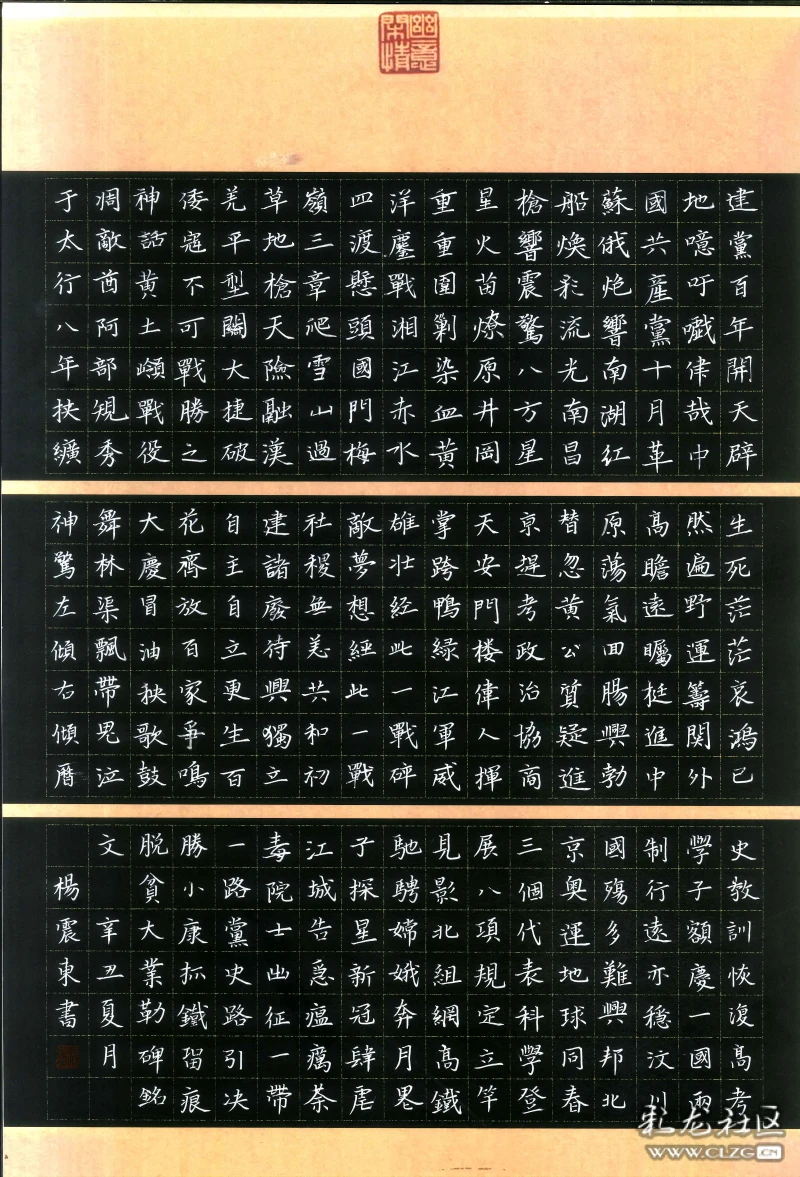 幽意閑情
建黨百年開天辟
地噫吁戲伟哉中
國共產黨十月革
蘇俄炮響南湖紅
船煥彩流光南昌
槍響震驚八方星
星火苗燎原井岡
重重圍剿染血黃
洋鏖戰湘江赤水
四渡懸頭國門梅
嶺三章爬雪山過
草地槍天險融漢
羌平型關大捷破
倭寇不可戰勝之
神話黃土嶺戰役
凋敵酋阿部规秀
于太行八年抉纊
生死茫茫哀鴻已
然遍野運籌関外
高瞻遠矚挺進中
原蕩氣回腸興勃
替忽黃公質疑進
京趕考政治協商
天安門楼偉人揮
掌跨鴨綠江軍威
雄壮經此一戰碎
敵夢想經此一戰
社稷無恙共和初
建諸廢待興獨立
自主自立更生百
花齊放百家爭鳴
大慶冒油秧歌鼓
舞林渠飄帶鬼泣
神驚左傾右傾曆
史教訓恢復高考
學子額慶一國兩
制行遠亦穩汶川
國殤多難興邦北
京奧運地球同春
三個代表科學登
展八項規定立竿
見影北組網高鐵
馳騁嫦娥奔月
子探星新冠肆虐
江城告急瘟癘荼
毒院士出征一帶
一路黨史路引决
勝小康抓鐵留痕
脱貧大業勒碑銘
文 辛丑夏月
楊震東書
化龙社区
WWW.CLZG.CN